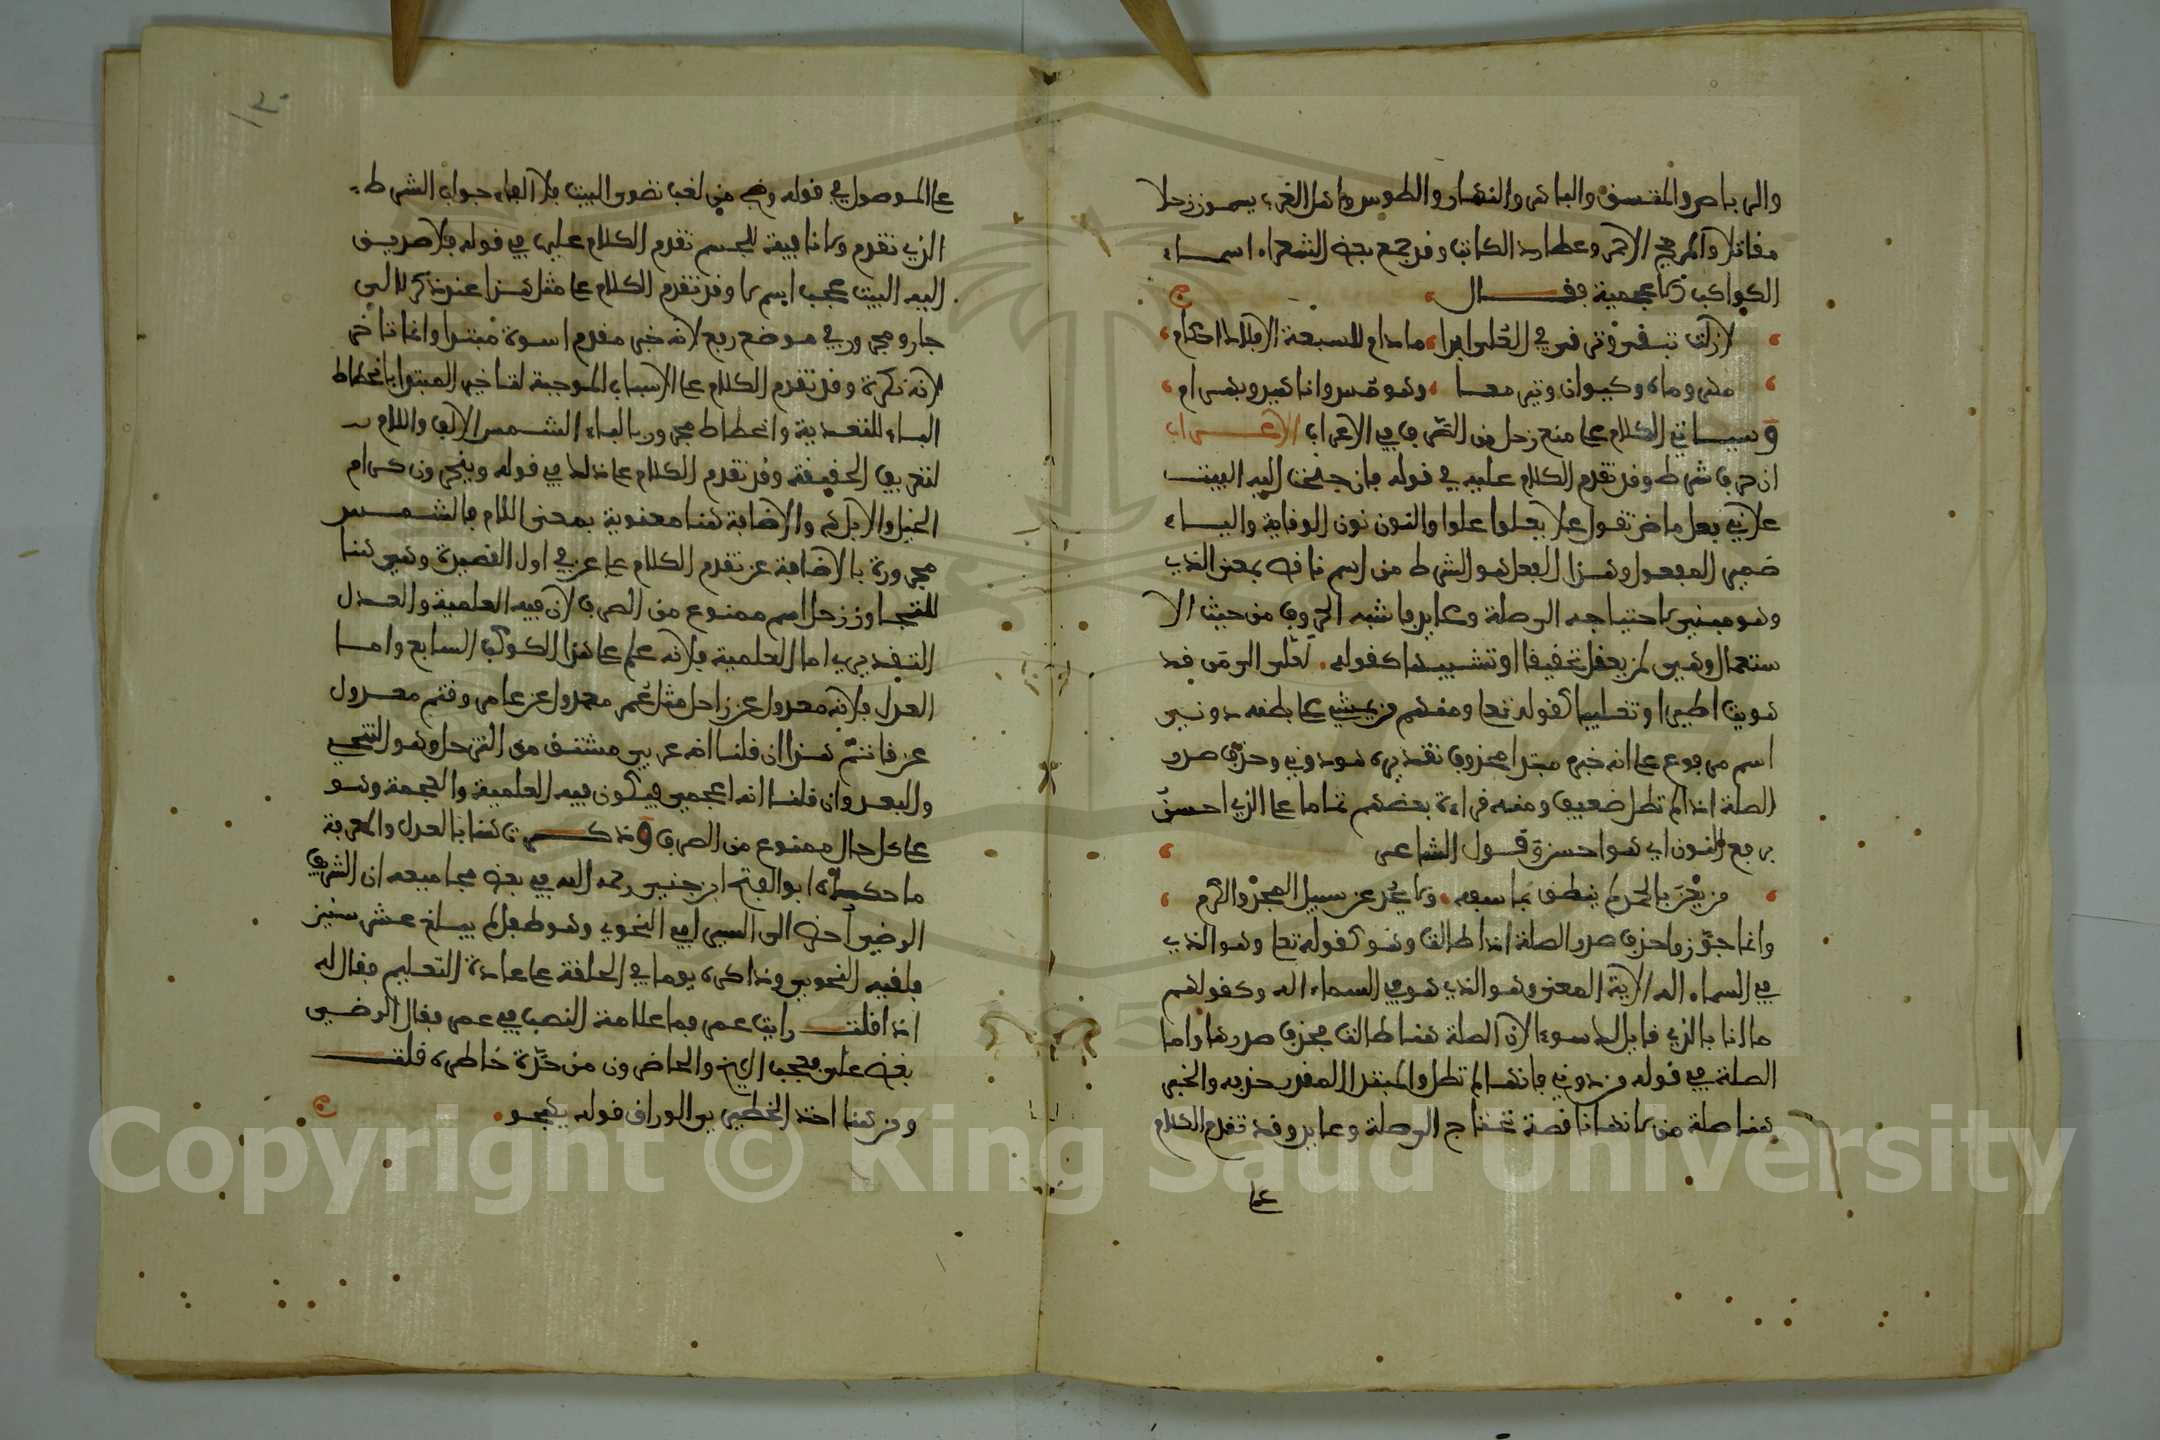 والرباص والمقسف والباىس والنهار والطوس واهل الغرب يسمون زحلا
مقاتلا والمريخ الاحمر وعطارد الكاتب وقد جمع بعض الشعراء اسماء
الكواكب الاعجمية فقال
لازلت تبقى وترقى في العلى ابدا ما دام للسبعة الافلاك احكام
مهر وماه وكيوان وتير معا وهرمس واناهيد وبهرام
وسياتي الكلام على منع زحل من الصرف في الاعراب الاعراب
ان حرف شرط وقد تقدم الكلام عليه في قوله فان جنحت اليه البيت
علاني فعل ماض تقول علا يعلوا علوا والنون نون الوقاية والياء
ضمير المفعول وهذا الفعل هو الشرط من اسم ناقص بمعنى الذي
وهو مبني لاحتياجه الى صلة وعايد فاشبه الحروف من حيث الا
ستعمال وهي لمن يعقل تحقيقا او تشبيها كقوله لعلي الى من قد
هويت اطير او تغليبا كقوله تعا ومنهم من يمشي على بطنه دوني
اسم مرفوع على انه خبر مبتدا محذوف تقديره هو دوني وحذف صدر
الصلة اذا لم تطل ضعيف ومنه قراءة بعضهم تماما على الذي احسن
برفع النون اي هو احسن وقول الشاعر
من يعن بالحمد لم ينطق بما سفه ولا يحد عن سبيل المجد والكرم
وانما جوزوا حذف صدر الصلة اذا طالت وهو كقوله تعا وهو الذي
في السماء اله الاية المعنى وهو الذي هو في السماء اله وكقولهم
ما انا بالذي قايل لك سوءا لان الصلة هنا طالت فحذف صدرها واما
الصلة في قوله من دوني فانها لم تطل والمبتدا المقدر حذفه والخبر
هنا صلة من لانها ناقصة تحتاج الى صلة وعايد وقد تقدم الكلام
على
على الموصول في قوله وضج من لغب نضوي البيت فلا الفاء جواب الشرط
الذي تقدم ولا نافية للجنس تقدم الكلام عليها في قوله فلا صديق
اليه البيت عجب اسم لا وقد تقدم الكلام على مثل هذا عند ذكر لا لي
جار ومجرور في موضع رفع لانه خبر مقدم اسوة مبتدا وانما تاخر
لانه نكرة وقد تقدم الكلام على الاسباب الموجبة لتاخير المبتدا بانحطاط
الباء للتعدية وانحطاط مجرور بالباء الشمس الالف واللام
لتعريف الحقيقة وقد تقدم الكلام على ذلك في قوله وينحرون كرام
الخيل والابل والاضافة هنا معنوية بمعنى اللام فالشمس
مجرورة بالاضافة عن تقدم الكلام على عن في اول القصيدة وهي هنا
للتجاوز زحل اسم ممنوع من الصرف لان فيه العلمية والعدل
التقديري اما العلمية فلانه علم على هذا الكوكب السابع واما
العدل فلانه معدول عن زاحل مثل عمر معدول عن عامر وقثم معدول
عن قاثم هذا ان قلنا انه عربي مشتق من التزحل وهو التنحي
والبعد وان قلنا انه اعجمي فيكون فيه العلمية والعجمة وهو
على كل حال ممنوع من الصرف وذكرت هنا بالعدل والمعرفة
ما حكاه ابو الفتح ابن جني رحمه الله في بعض مجاميعه ان الشريف
الرضي احضر الى السيرافي النحوي وهو طفل لم يبلغ عشر سنين
فلقنه النحو وذاكره يوما في الحلقة على عادة التعليم فقال له
اذا قلت رايت عمر فما علامة النصب في عمر فقال الرضي
بغض علي فعجب الشيخ والحاضرون من حدة خاطره قلت
ومن هنا اخذ الخطيري الوراق قوله يهجو